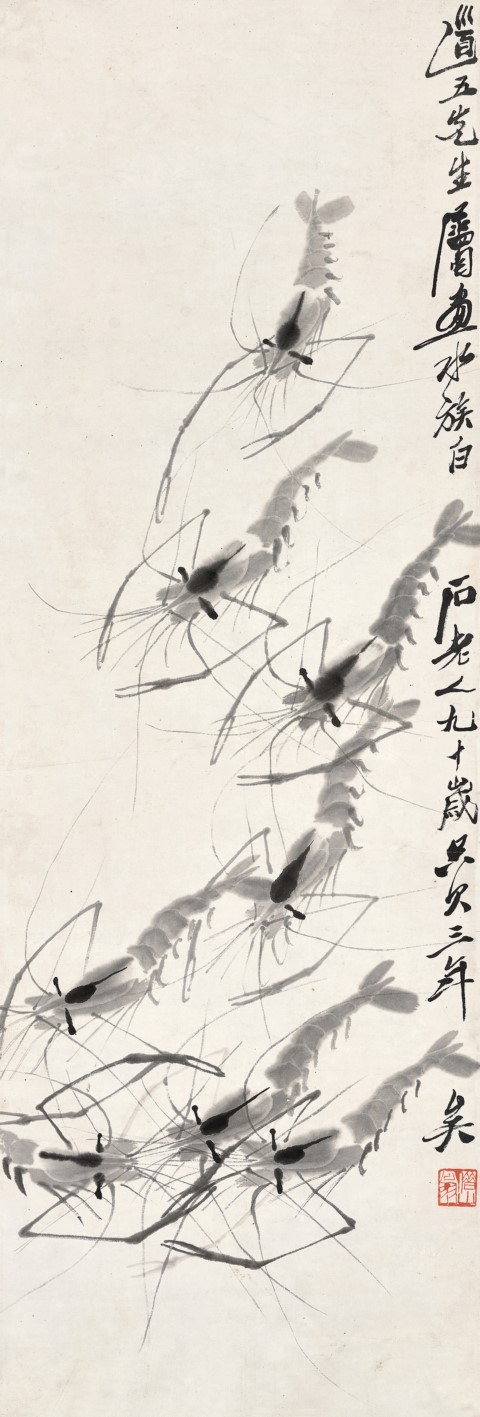 道五先生屬畫水族白石老人九十歲只欠三年矣
借山翁